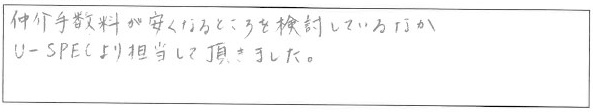 仲介手数料が安くなるところを検討しているなか
U-SPECより担当して頂きました。